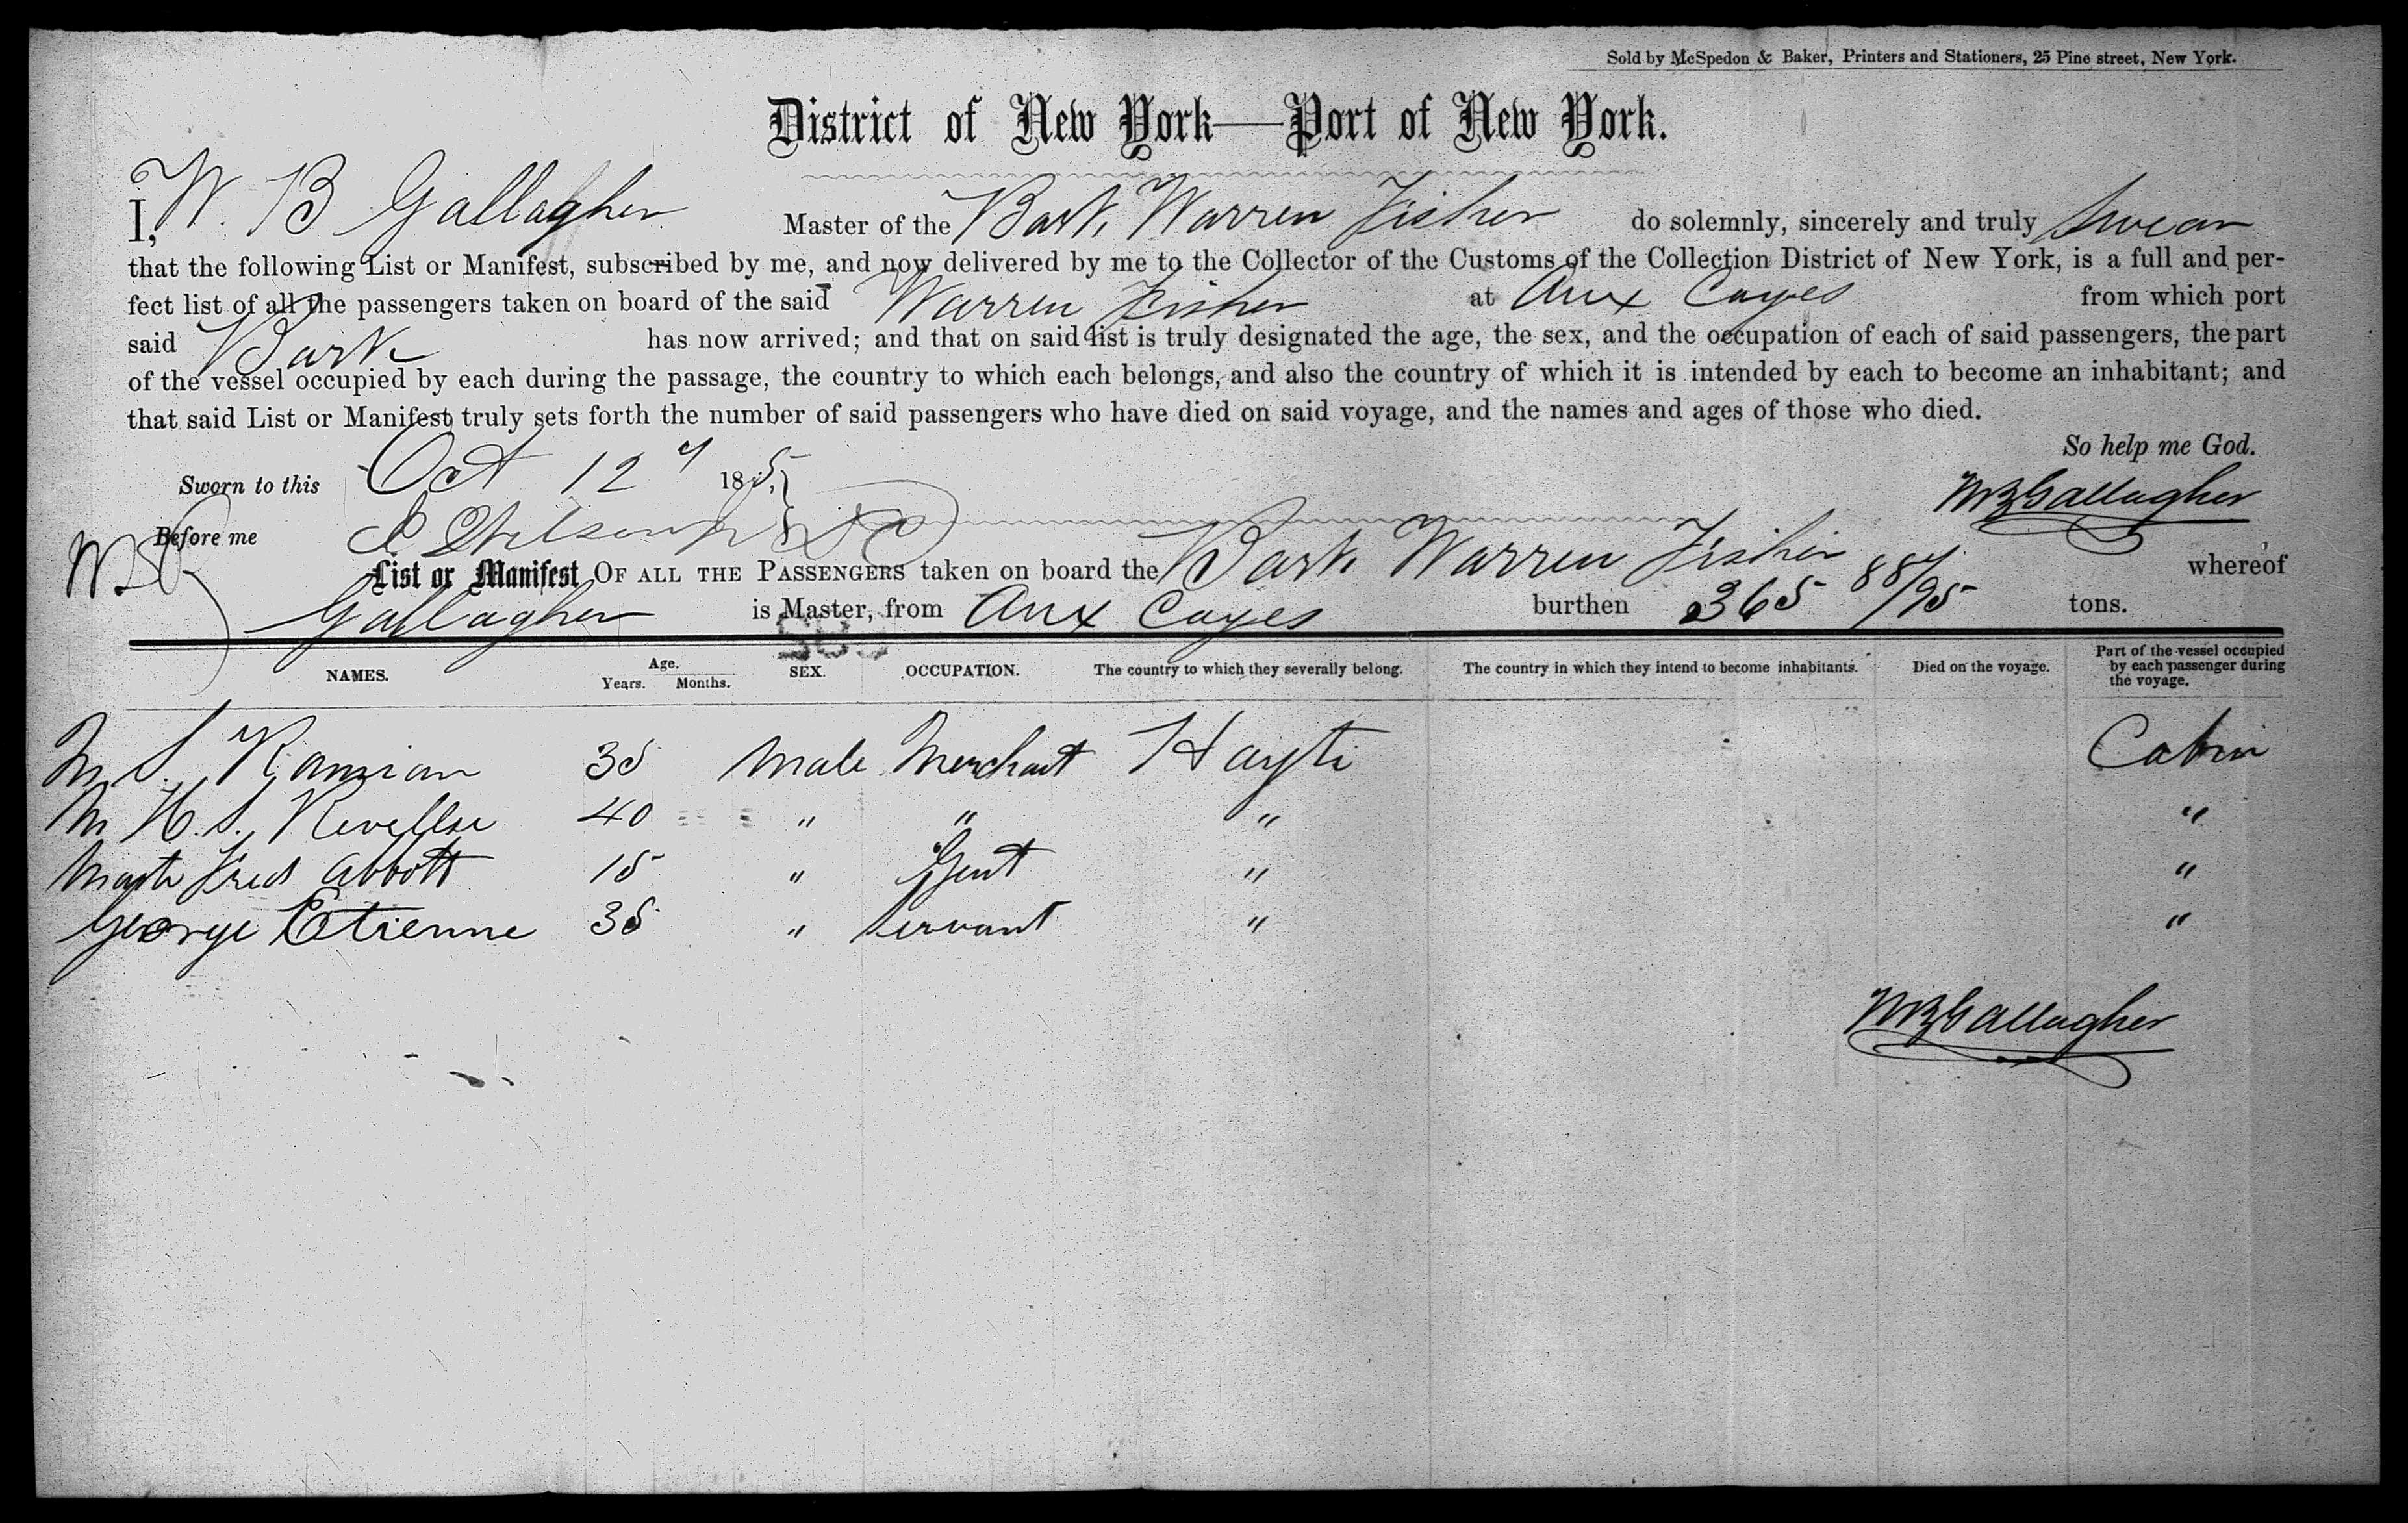 Sold by McSpedon & Baker, Printers and Stationers, 25 Pine street, New York.
District of New York—Port of New York.
I, W. B Gallagher Master of the Bark Warren Fisher do solemnly, sincerely and truly swear
that the following List or Manifest, subscribed by me, and now delivered by me to the Collector of the Customs of the Collection District of New York, is a full and per-
fect list of all the passengers taken on board of the said Warren Fisher at Aux Cayes from which port
said Bark has now arrived; and that on said list is truly designated the age, the sex, and the occupation of each of said passengers, the part
of the vessel occupied by each during the passage, the country to which each belongs, and also the country of which it is intended by each to become an inhabitant; and
that said List or Manifest truly sets forth the number of said passengers who have died on said voyage, and the names and ages of those who died.
So help me God.
Sworn to this Oct 12 185
WBGallagher
Before me
List or Manifest OF ALL THE PASSENGERS taken on board the Bark Warren Fisher whereof
Gallagher is Master, from Aux Cayes burthen 365 88/95 tons.
NAMES. Age. Years. Months. SEX. OCCUPATION. The country to which they severally belong. The country in which they intend to become inhabitants. Died on the voyage. Part of the vessel occupied by each passenger during the voyage.
M S. 35 Male Merchant Hayti Cabin
M H. S. 40 " " " "
Mast Fred Abbott 15 " Gent " "
George Etienne 35 " Servant " "
WBGallagher